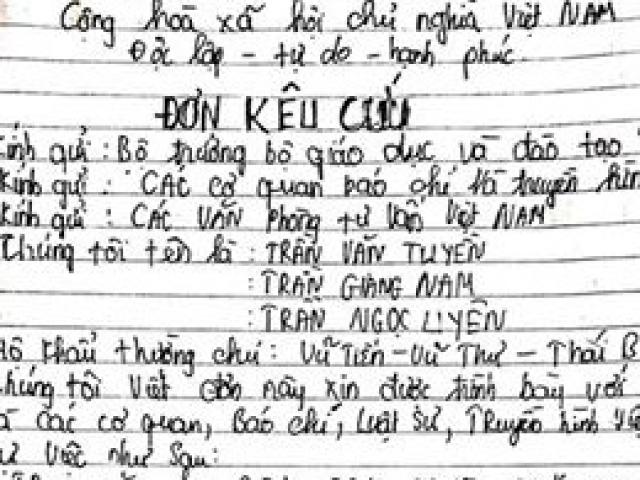 Cộng hoà xã hội chủ nghĩa Việt NAM
Độc lập - tự do - hạnh phúc
ĐƠN KÊU CỨU
Kính gửi : Bộ trưởng bộ giáo dục và đào tạo
Kính gửi : CÁC cơ quan báo chí và truyền hìn
Kính gửi : CÁC VĂN phòng tư vấn Việt NAM
Chúng tôi tên là : TRẦN VĂN TUYÊN
: TRẦN GIANG NAM
: TRẦN NGỌC LUYÊN
Hộ khẩu thường chú : Vũ Tiến - Vũ Thư - Thái B
Chúng tôi Viết đơn này xin được trình bày với
các cơ quan, Báo chí, Luật sư, Truyền hình Việ
Việc như sau :